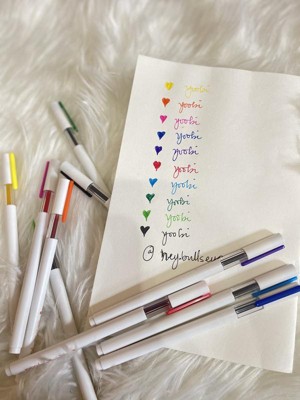 yoobi
yoobi
yoobi
yoobi
yoobi
yoobi
yoobi
yoobi
yoobi
yoobi
@hey.bullseye